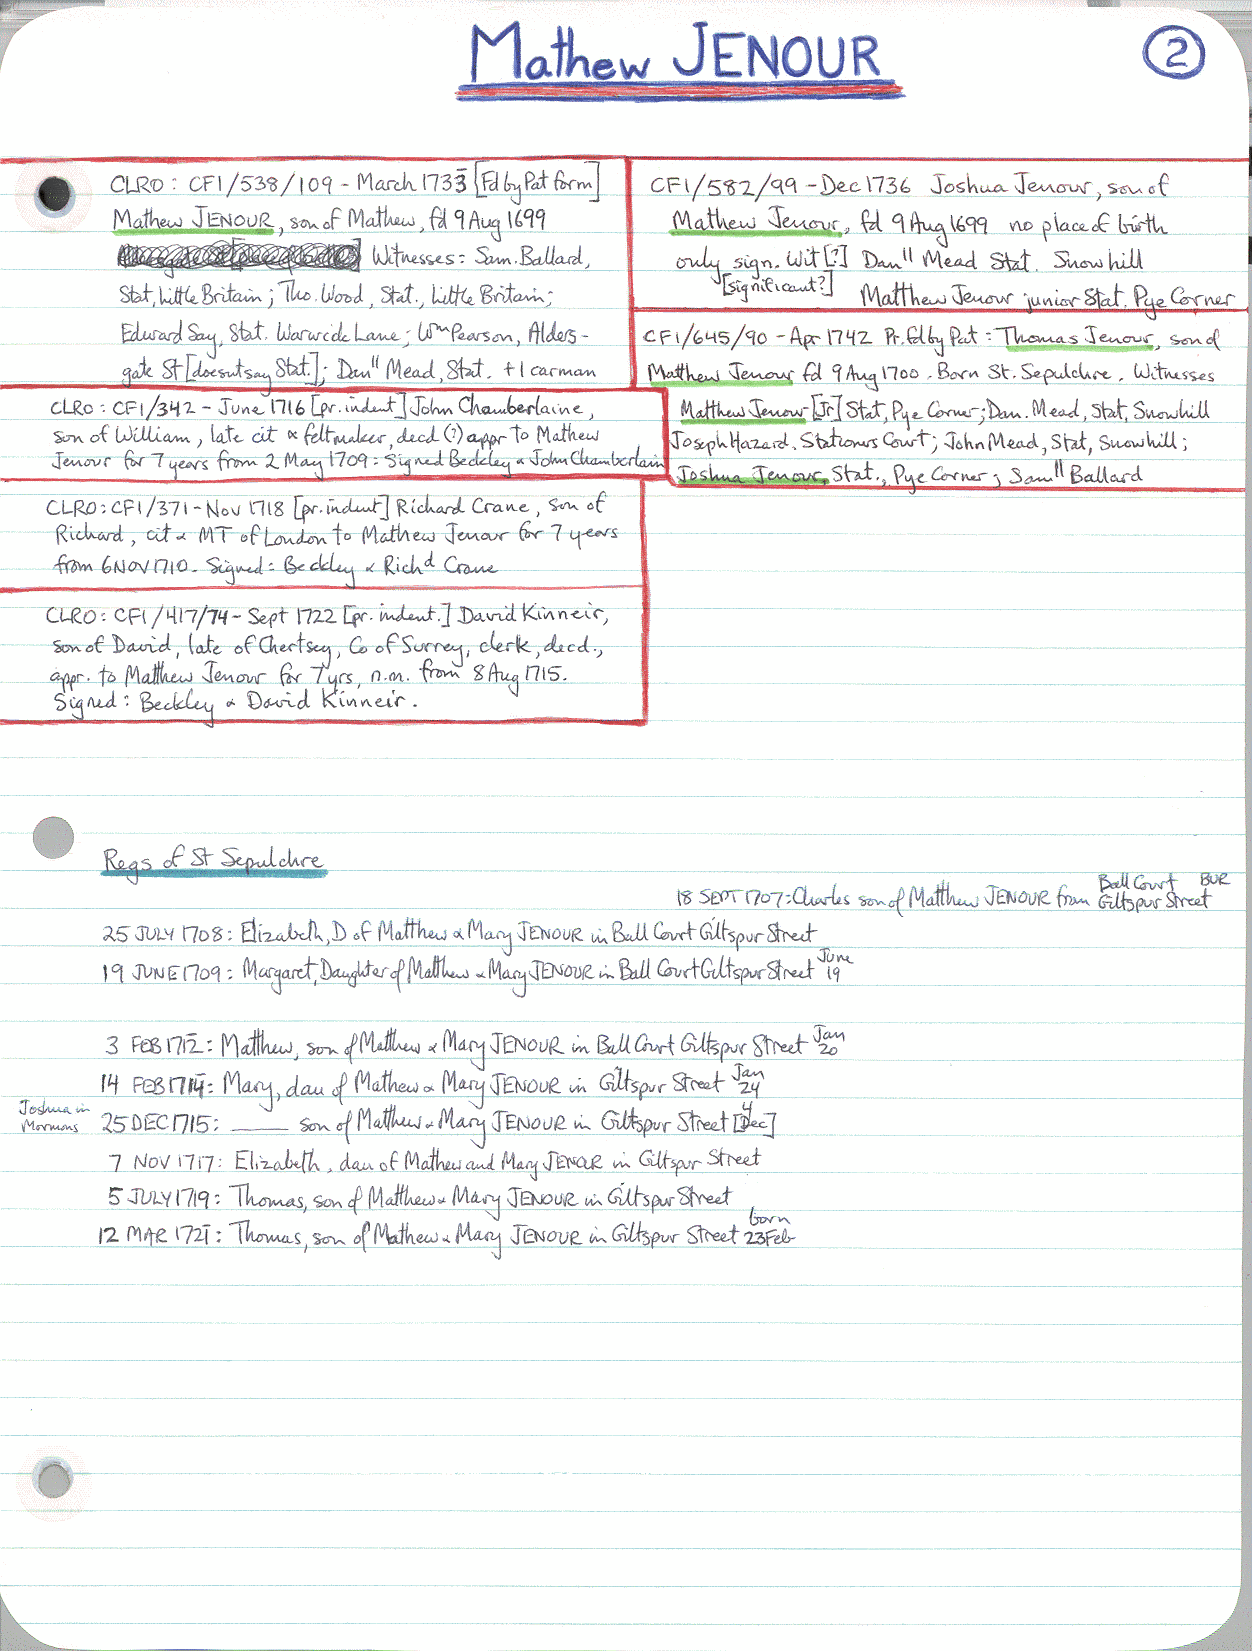 Mathew JENOUR
2
CLRO: CF1/538/109 - March 1733 [Fd by Pat form]
Mathew JENOUR, son of Mathew, fd 9 Aug 1699
Witnesses: Sam. Ballard,
Stat, Little Britain; Tho. Wood, Stat., Little Britain;
Edward Say, Stat. Warwick Lane; Wm Pearson, Alders-
gate St [doesnt say Stat.]; Danll Mead, Stat. + 1 carman
CLRO: CF1/342 - June 1716 [pr. indent] John Chamberlaine,
son of William, late cit & feltmaker, decd (?) appr to Mathew
Jenour for 7 years from 2 May 1709: Signed Beckley & John Chamberlain
CLRO: CF1/371 - Nov 1718 [pr. indent] Richard Crane, son of
Richard, cit & MT of London to Mathew Jenour for 7 years
from 6 NOV 1710. Signed: Beckley & Richd Crane
CLRO: CF1/417/74 - Sept 1722 [pr. indent.] David Kinneir,
son of David, late of Chertsey, Co of Surrey, clerk, decd.,
appr. to Matthew Jenour for 7 yrs, n.m. from 8 Aug 1715.
Signed: Beckley & David Kinneir.
CF1/582/99 - Dec 1736 Joshua Jenour, son of
Mathew Jenour, fd 9 Aug 1699 no place of birth
only sign. Wit [?] Danll Mead Stat. Snowhill
[significant?] Matthew Jenour junior Stat. Pye Corner
CF1/645/90 - Apr 1742 Pr. Fd by Pat: Thomas Jenour, son of
Matthew Jenour fd 9 Aug 1700. Born St. Sepulchre. Witnesses
Matthew Jenour [Jr] Stat, Pye Corner; Dan. Mead, Stat, Snowhill
Joseph Hazard, Stationers Court; John Mead, Stat, Snowhill;
Joshua Jenour, Stat., Pye Corner; Samll Ballard
Regs of St Sepulchre
Ball Court BUR
18 SEPT 1707: Charles son of Matthew JENOUR from Giltspur Street
25 JULY 1708: Elizabeth, D of Matthew & Mary JENOUR in Ball Court Giltspur Street
19 JUNE 1709: Margaret, Daughter of Matthew & Mary JENOUR in Ball Court Giltspur Street June 19
3 FEB 1712: Matthew, son of Matthew & Mary JENOUR in Ball Court Giltspur Street Jan 20
14 FEB 1714: Mary, dau of Mathew & Mary JENOUR in Giltspur Street Jan 24
Joshua in
Mormons
25 DEC 1715: ____ son of Matthew & Mary JENOUR in Giltspur Street [4 Dec]
7 NOV 1717: Elizabeth, dau of Mathew and Mary JENOUR in Giltspur Street
5 JULY 1719: Thomas, son of Matthew & Mary JENOUR in Giltspur Street
12 MAR 1721: Thomas, son of Mathew & Mary JENOUR in Giltspur Street born 23 Feb